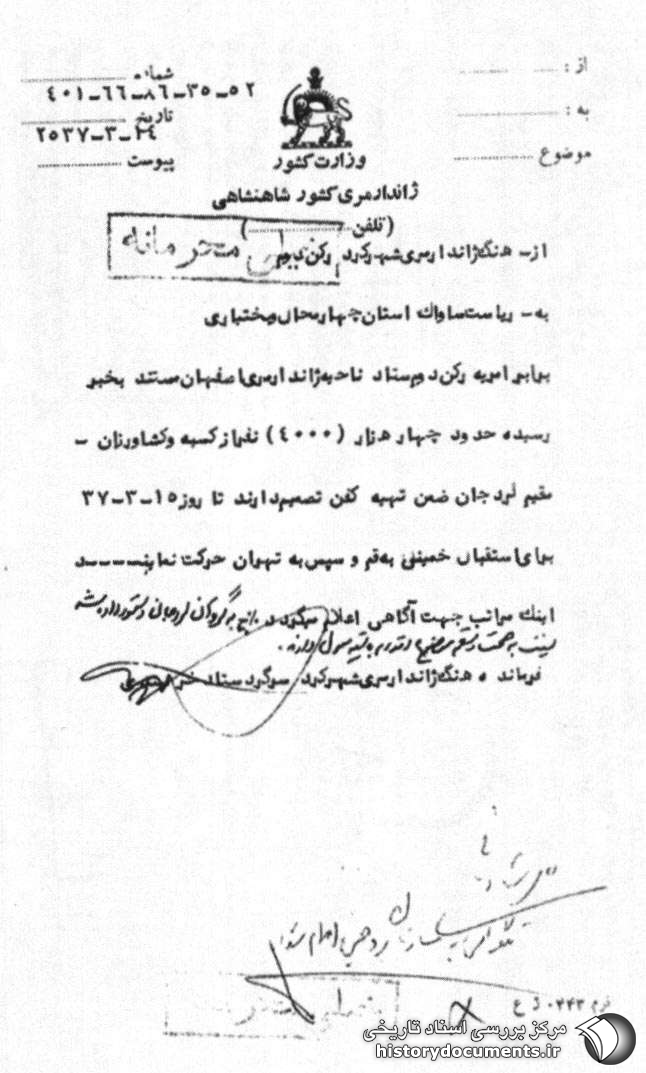 از :
به :
موضوع
شماره
۴۰۱-۶۶-۸۶-۳۵-۵۲
تاریخ
۲۵۳۷-۳-۱۴
پیوست
وزارت کشور
ژاندارمری کشور شاهنشاهی
(تلفن )
خیلی محرمانه
از- هنگ ژاندارمری شهرکرد رکن دوم
به- ریاست ساواک استان چهارمحال وبختیاری
برابر امریه رکن دوم ستاد ناحیه ژاندارمری اصفهان مستند بخبر
رسیده حدود چهار هزار (۴۰۰۰) نفر از کسبه وکشاورزان -
مقیم لردجان ضمن تهیه کفن تصمیم دارند تا روز ۱۵-۳-۳۷
برای استقبال خمینی به قم و سپس به تهران حرکت نمایند
اینک مراتب جهت آگاهی اعلام میگردد به گروهان لردجان دستور داده شد
نسبت به صحت و سقم موضوع
فرمانده هنگ ژاندارمری شهرکرد سرگرد ستاد
اقدام شد
خیلی محرمانه
فرم ۰۴۴۳ ژ ع
مرکز بررسی اسناد تاریخی
historydocuments.ir